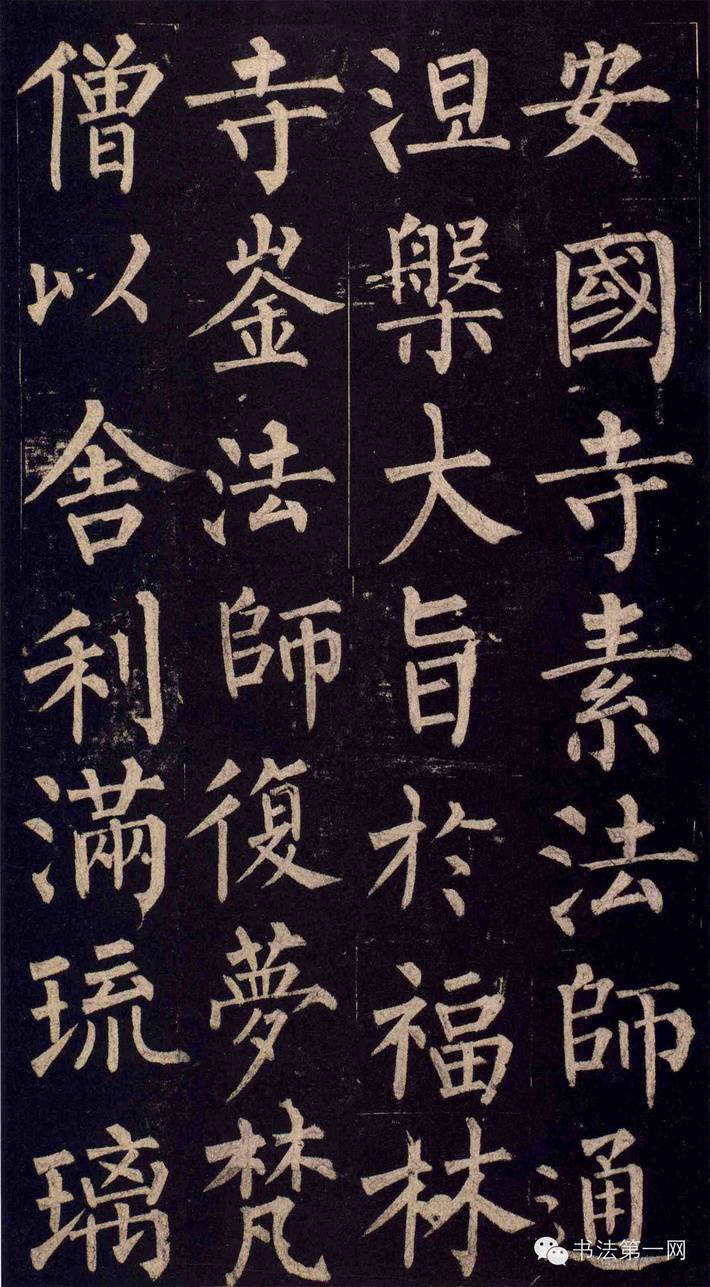 安國寺素法師通
涅槃大旨於福林
寺崟法師復夢梵
僧以舍利滿琉璃
书法第一网